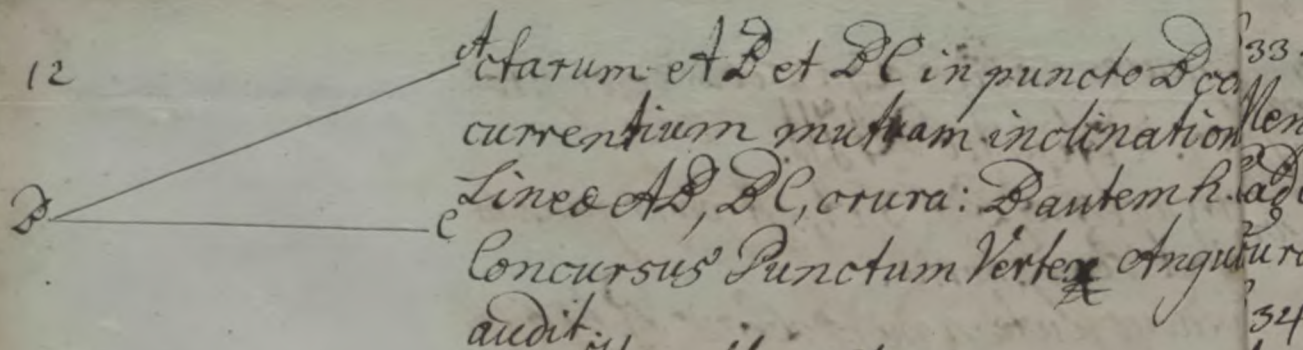 12
A
B
C
ctarum AB et BC in puncto B co
currentium mutuam inclination
Lineæ AB, BC, crura: B autem h.
Concursus Punctum Vertex Angu
audit.
33.
34